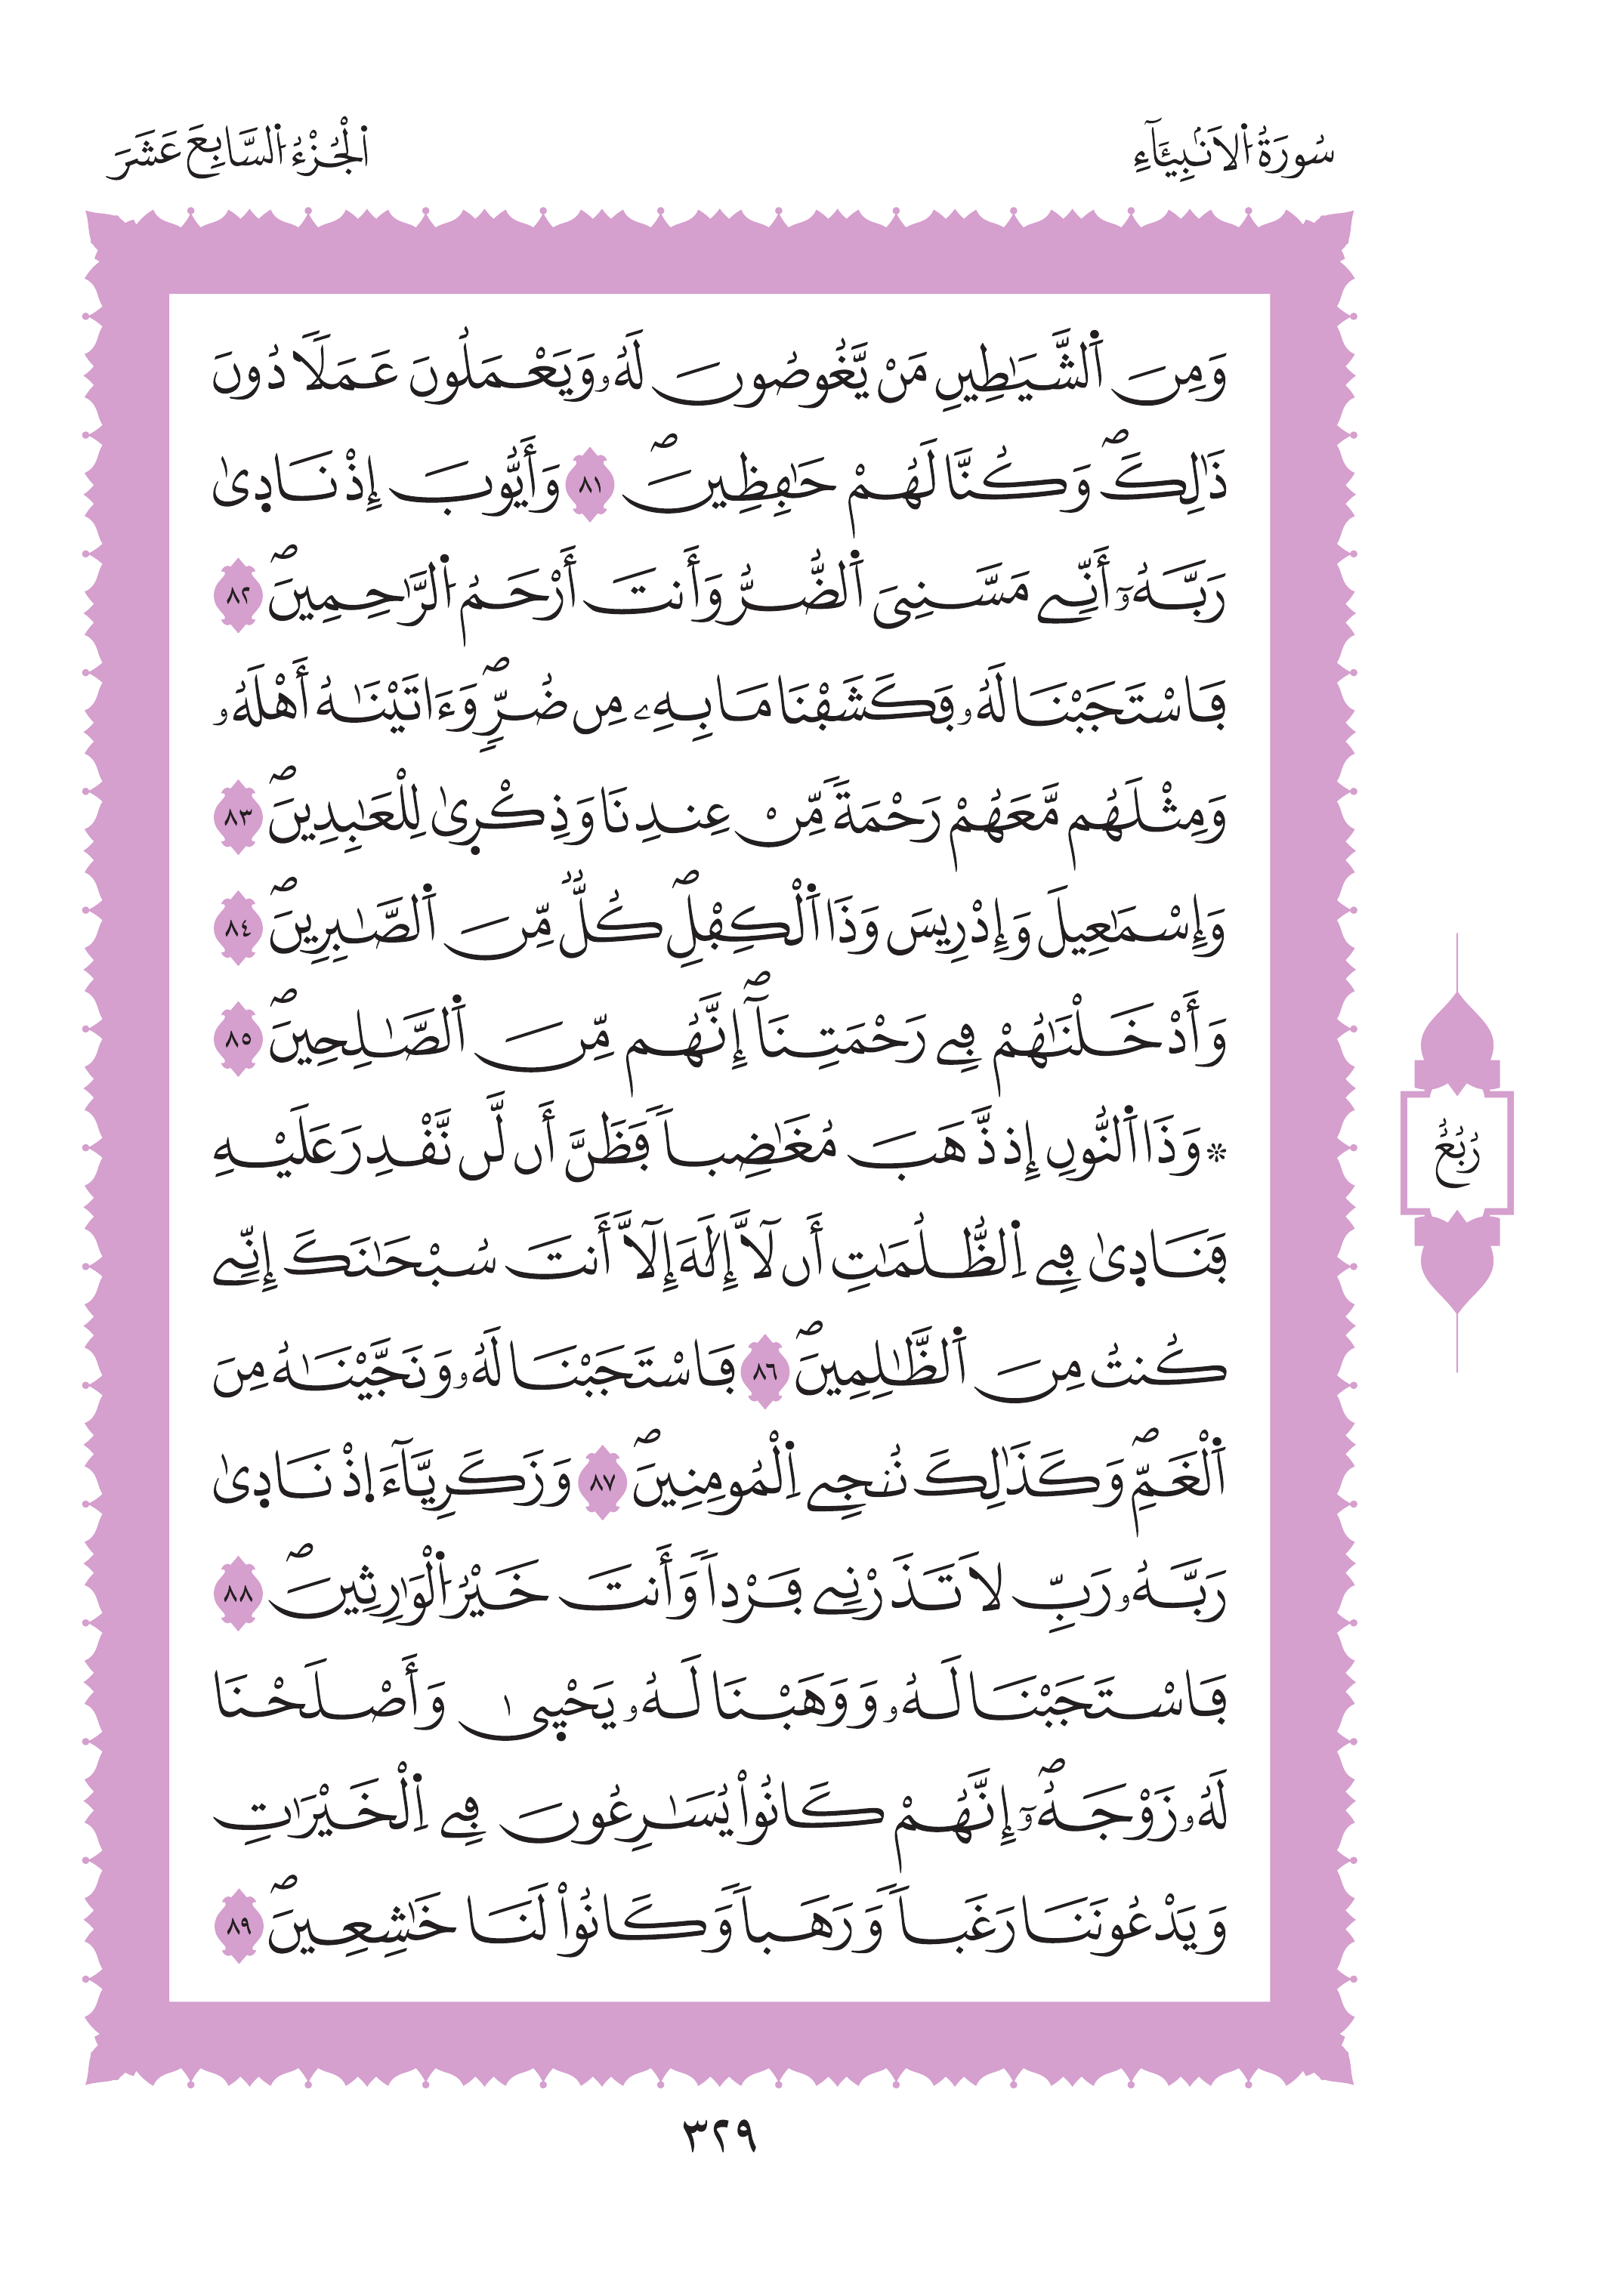 سُورَةُ اُ۬لَانۢبِيَآءِ
اَ۬لْجُزْءُ اُ۬لسَّابِعَ عَشَرَ
وَمِنَ اَ۬لشَّيَٰطِينِ مَنْ يَّغُوصُونَ لَهُۥ وَيَعْمَلُونَ عَمَلاٗ دُونَ
ذَٰلِكَۖ وَكُنَّا لَهُمْ حَٰفِظِينَۖ ٨١ وَأَيُّوبَ إِذْ نَادۭيٰ
رَبَّهُۥٓ أَنِّے مَسَّنِيَ اَ۬لضُّرُّ وَأَنتَ أَرْحَمُ اُ۬لرَّٰحِمِينَۖ ٨٢
فَاسْتَجَبْنَا لَهُۥ فَكَشَفْنَا مَا بِهِۦ مِن ضُرّٖۖ وَءَاتَيْنَٰهُ أَهْلَهُۥ
وَمِثْلَهُم مَّعَهُمْ رَحْمَةٗ مِّنْ عِندِنَا وَذِكْر۪يٰ لِلْعَٰبِدِينَۖ ٨٣
وَإِسْمَٰعِيلَ وَإِدْرِيسَ وَذَا اَ۬لْكِفْلِۖ كُلّٞ مِّنَ اَ۬لصَّٰبِرِينَۖ ٨٤
وَأَدْخَلْنَٰهُمْ فِے رَحْمَتِنَآۖ إِنَّهُم مِّنَ اَ۬لصَّٰلِحِينَۖ ٨٥
۞وَذَا اَ۬لنُّونِ إِذ ذَّهَبَ مُغَٰضِباٗ فَظَنَّ أَن لَّن نَّقْدِرَ عَلَيْهِ
فَنَاد۪يٰ فِے اِ۬لظُّلُمَٰتِ أَن لَّآ إِلَٰهَ إِلَّآ أَنتَ سُبْحَٰنَكَ إِنِّے
كُنتُ مِنَ اَ۬لظَّٰلِمِينَۖ ٨٦ فَاسْتَجَبْنَا لَهُۥ وَنَجَّيْنَٰهُ مِنَ
اَ۬لْغَمِّۖ وَكَذَٰلِكَ نُنجِے اِ۬لْمُومِنِينَۖ ٨٧ وَزَكَرِيَّآءَ اِ۪ذْ نَاد۪يٰ
رَبَّهُۥ رَبِّ لَا تَذَرْنِے فَرْداٗ وَأَنتَ خَيْرُ اُ۬لْوَٰرِثِينَۖ ٨٨
فَاسْتَجَبْنَا لَهُۥ وَوَهَبْنَا لَهُۥ يَحْي۪يٰ وَأَصْلَحْنَا
لَهُۥ زَوْجَهُۥٓۖ إِنَّهُمْ كَانُواْ يُسَٰرِعُونَ فِے اِ۬لْخَيْرَٰتِ
وَيَدْعُونَنَا رَغَباٗ وَرَهَباٗ وَكَانُواْ لَنَا خَٰشِعِينَۖ ٨٩
رُبُعُ
٣٢٩